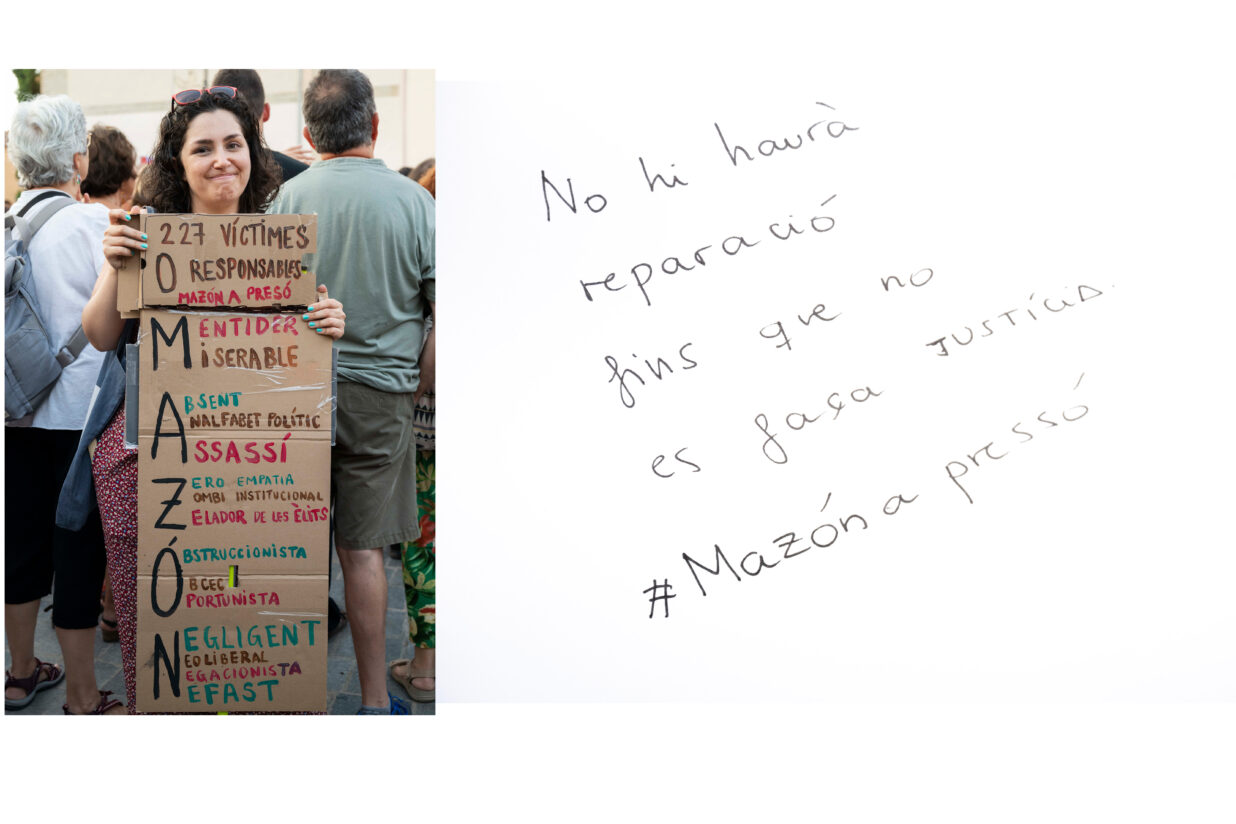 227 VÍCTIMES
0 RESPONSABLES
MAZÓN A PRESÓ
MENTIDER
MISERABLE
ABSENT
ANALFABET POLÍTIC
ASSASSÍ
ZERO EMPATIA
ZOMBI INSTITUCIONAL
ZELADOR DE LES ÈLITS
OBSTRUCCIONISTA
OBCEC
OPORTUNISTA
NEGLIGENT
NEOLIBERAL
NEGACIONISTA
NEFAST
No hi haurà
reparació
fins que no
es faça JUSTÍCIA.
#Mazón a pressó